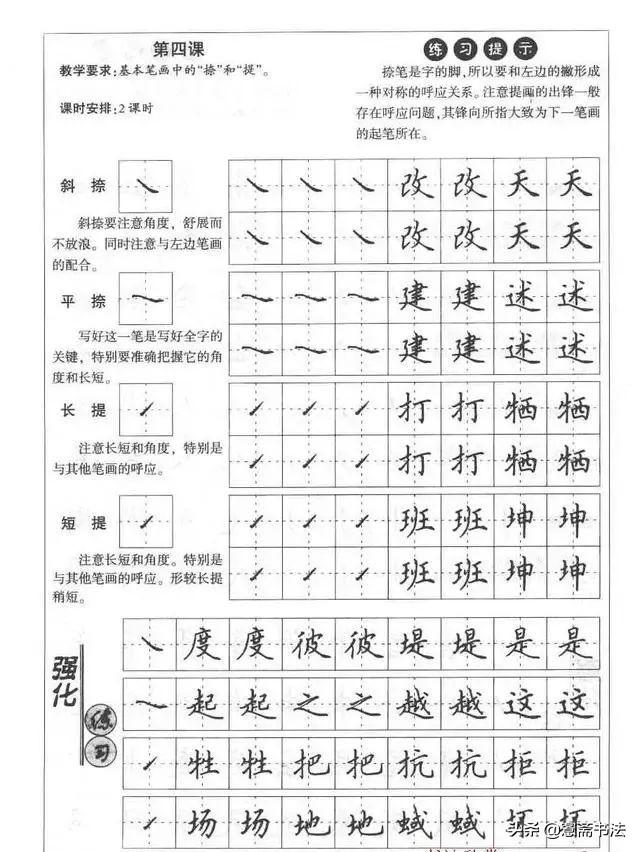 第四课
教学要求:基本笔画中的“捺”和“提”。
课时安排:2课时
练习提示
捺笔是字的脚,所以要和左边的撇形成
一种对称的呼应关系。注意提画的出锋一般
存在呼应问题,其锋向所指大致为下一笔画
的起笔所在。
斜捺
改 改 天 天
斜捺要注意角度,舒展而
不放浪。同时注意与左边笔画
的配合。
改 改 天 天
平捺
建 建 述 述
写好这一笔是写好全字的
关键,特别要准确把握它的角
度和长短。
建 建 述 述
长提
打 打 牺 牺
注意长短和角度,特别是
与其他笔画的呼应。
打 打 牺 牺
短提
班 班 坤 坤
注意长短和角度。特别是
与其他笔画的呼应。形较长提
稍短。
班 班 坤 坤
强化
练习
度 度 彼 彼 堤 堤 是 是
起 起 之 之 越 越 这 这
牲 牲 把 把 抗 抗 拒 拒
场 场 地 地
头条 @斋书法